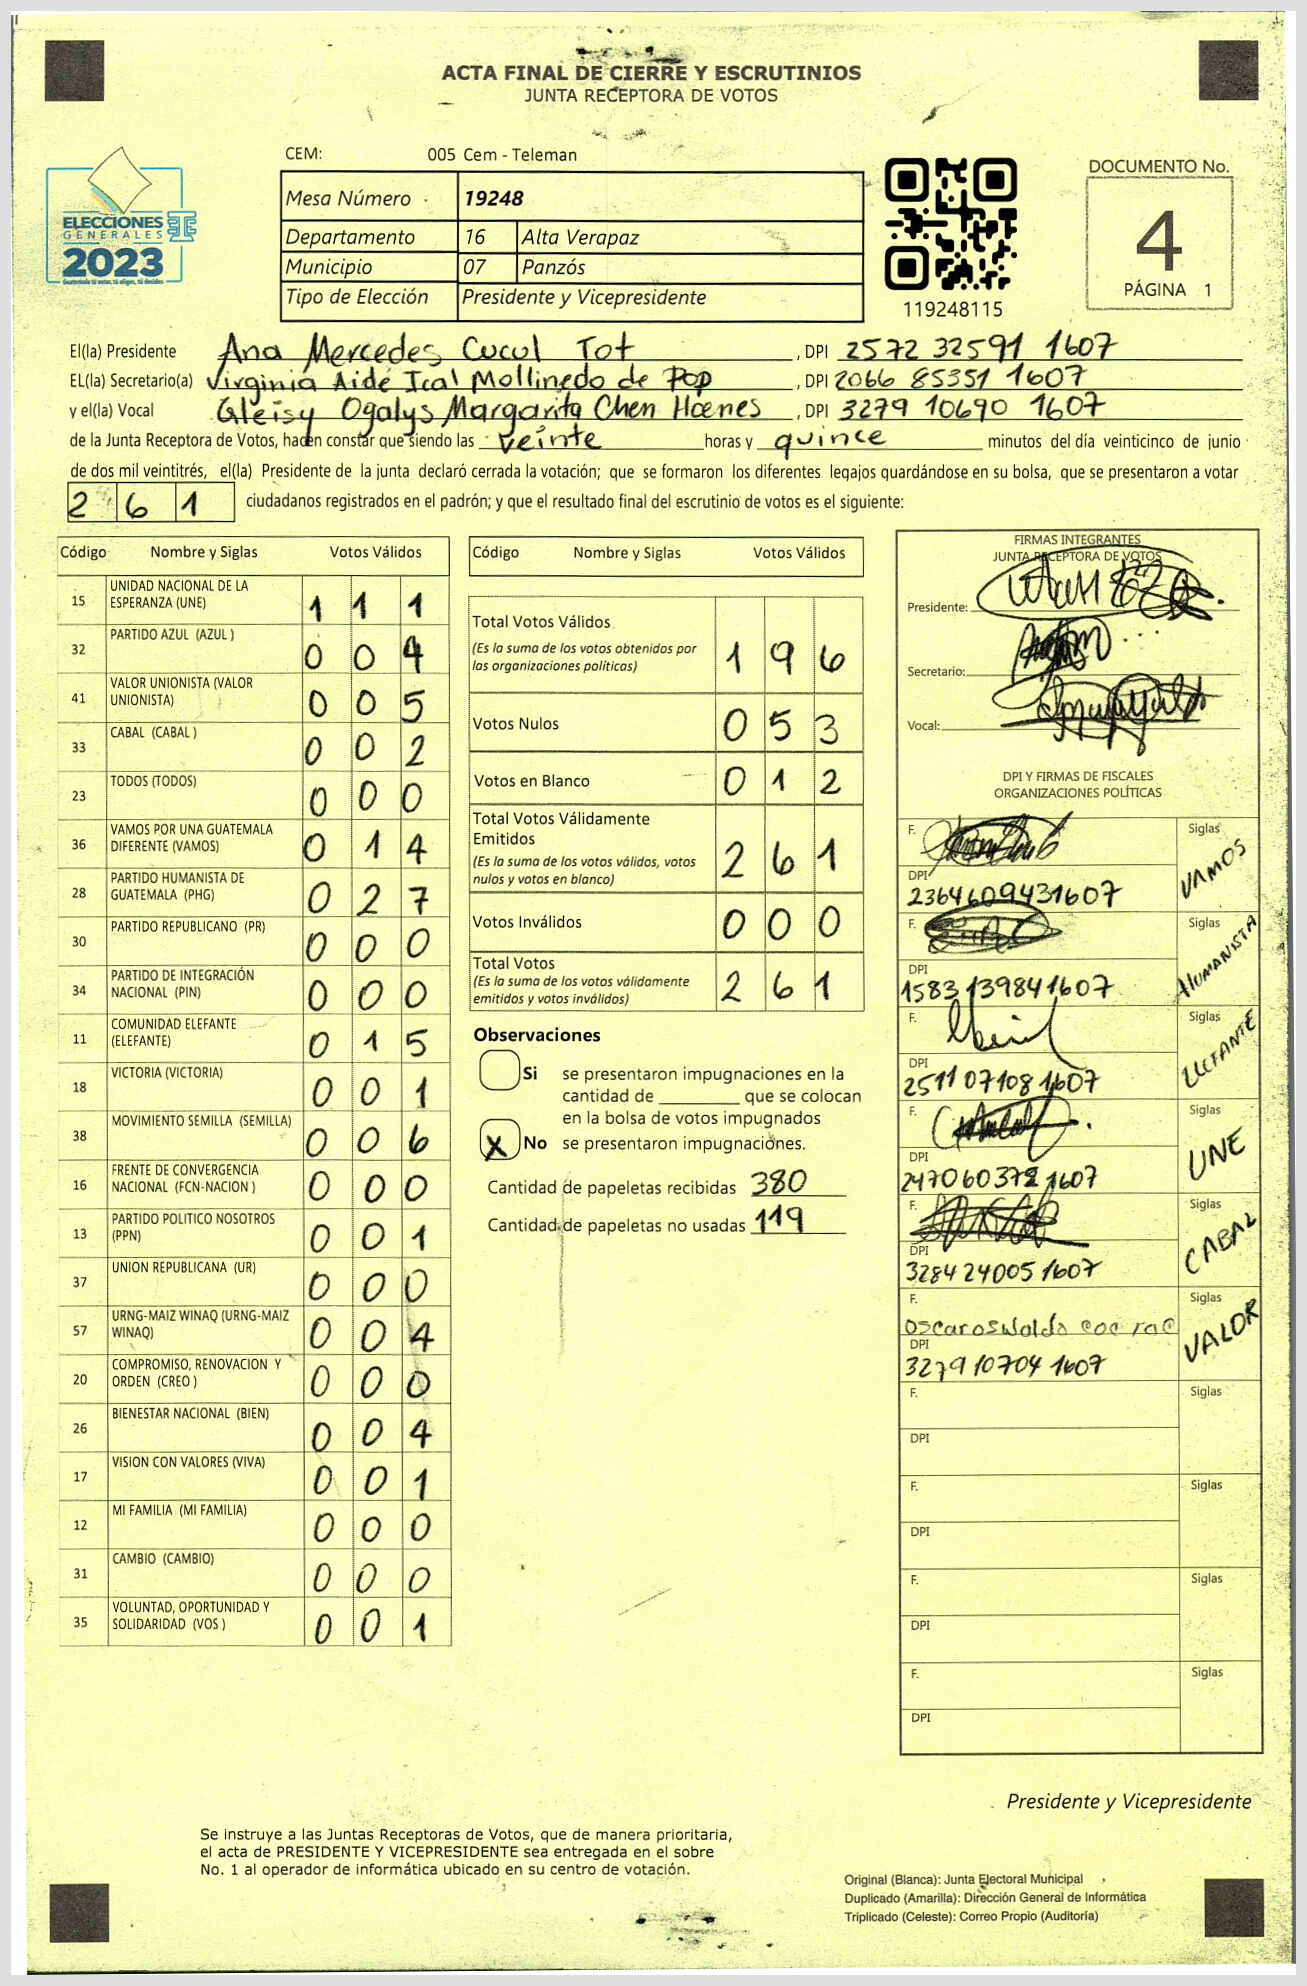 ACTA FINAL DE CIERRE Y ESCRUTINIOS
JUNTA RECEPTORA DE VOTOS
CEM: 005 Cem - Teleman
ELECCIONES
GENERALES
2023
Mesa Número 19248
Departamento 16 Alta Verapaz
Municipio 07 Panzós
Tipo de Elección Presidente y Vicepresidente
119248115
DOCUMENTO No.
4
PÁGINA 1
El(la) Presidente Ana Mercedes Cucul Tot, DPI 2572 32591 1607
EL(la) Secretario(a) Virginia Aidé Ical Mollinedo de Pop, DPI 2066 85351 1607
y el(la) Vocal Gleisy Ogalys Margarita Chen Hoenes, DPI 3279 10690 1607
de la Junta Receptora de Votos, hacen constar que siendo las veinte horas y quince minutos del día veinticinco de junio
de dos mil veintitrés, el(la) Presidente de la junta declaró cerrada la votación; que se formaron los diferentes legajos quardándose en su bolsa, que se presentaron a votar
261 ciudadanos registrados en el padrón; y que el resultado final del escrutinio de votos es el siguiente:
Código Nombre y Siglas Votos Válidos
15 UNIDAD NACIONAL DE LA ESPERANZA (UNE) 1 1 1
32 PARTIDO AZUL (AZUL ) 0 0 4
41 VALOR UNIONISTA (VALOR UNIONISTA) 0 0 5
33 CABAL (CABAL ) 0 0 2
23 TODOS (TODOS) 0 0 0
36 VAMOS POR UNA GUATEMALA DIFERENTE (VAMOS) 0 1 4
28 PARTIDO HUMANISTA DE GUATEMALA (PHG) 0 2 7
30 PARTIDO REPUBLICANO (PR) 0 0 0
34 PARTIDO DE INTEGRACIÓN NACIONAL (PIN) 0 0 0
11 COMUNIDAD ELEFANTE (ELEFANTE) 0 1 5
18 VICTORIA (VICTORIA) 0 0 1
38 MOVIMIENTO SEMILLA (SEMILLA) 0 0 6
16 FRENTE DE CONVERGENCIA NACIONAL (FCN-NACION ) 0 0 0
13 PARTIDO POLITICO NOSOTROS (PPN) 0 0 1
37 UNION REPUBLICANA (UR) 0 0 0
57 URNG-MAIZ WINAQ (URNG-MAIZ WINAQ) 0 0 4
20 COMPROMISO, RENOVACION Y ORDEN (CREO ) 0 0 0
26 BIENESTAR NACIONAL (BIEN) 0 0 4
17 VISION CON VALORES (VIVA) 0 0 1
12 MI FAMILIA (MI FAMILIA) 0 0 0
31 CAMBIO (CAMBIO) 0 0 0
35 VOLUNTAD, OPORTUNIDAD Y SOLIDARIDAD (VOS ) 0 0 1
Código Nombre y Siglas Votos Válidos
Total Votos Válidos 1 9 6
(Es la suma de los votos obtenidos por
las organizaciones políticas)
Votos Nulos 0 5 3
Votos en Blanco 0 1 2
Total Votos Válidamente
Emitidos 2 6 1
(Es la suma de los votos válidos, votos
nulos y votos en blanco)
Votos Inválidos 0 0 0
Total Votos 2 6 1
(Es la suma de los votos válidamente
emitidos y votos inválidos)
Observaciones
Si se presentaron impugnaciones en la
cantidad de ________ que se colocan
en la bolsa de votos impugnados
X No se presentaron impugnaciones.
Cantidad de papeletas recibidas 380
Cantidad de papeletas no usadas 119
FIRMAS INTEGRANTES
JUNTA RECEPTORA DE VOTOS
Presidente:
Secretario:
Vocal:
DPI Y FIRMAS DE FISCALES
ORGANIZACIONES POLÍTICAS
F. Siglas VAMOS
DPI 2364609431607
F. Siglas HUMANISTA
DPI 1583139841607
F. Siglas ELEFANTE
DPI 2511071081607
F. Siglas UNE
DPI 2470603721607
F. Siglas CABAL
DPI 3284240051607
F. Oscar oswaldo coc Siglas VALOR
DPI 3279107041607
F. Siglas
DPI
F. Siglas
DPI
F. Siglas
DPI
F. Siglas
DPI
Presidente y Vicepresidente
Se instruye a las Juntas Receptoras de Votos, que de manera prioritaria,
el acta de PRESIDENTE Y VICEPRESIDENTE sea entregada en el sobre
No. 1 al operador de informática ubicado en su centro de votación.
Original (Blanca): Junta Electoral Municipal
Duplicado (Amarilla): Dirección General de Informática
Triplicado (Celeste): Correo Propio (Auditoría)